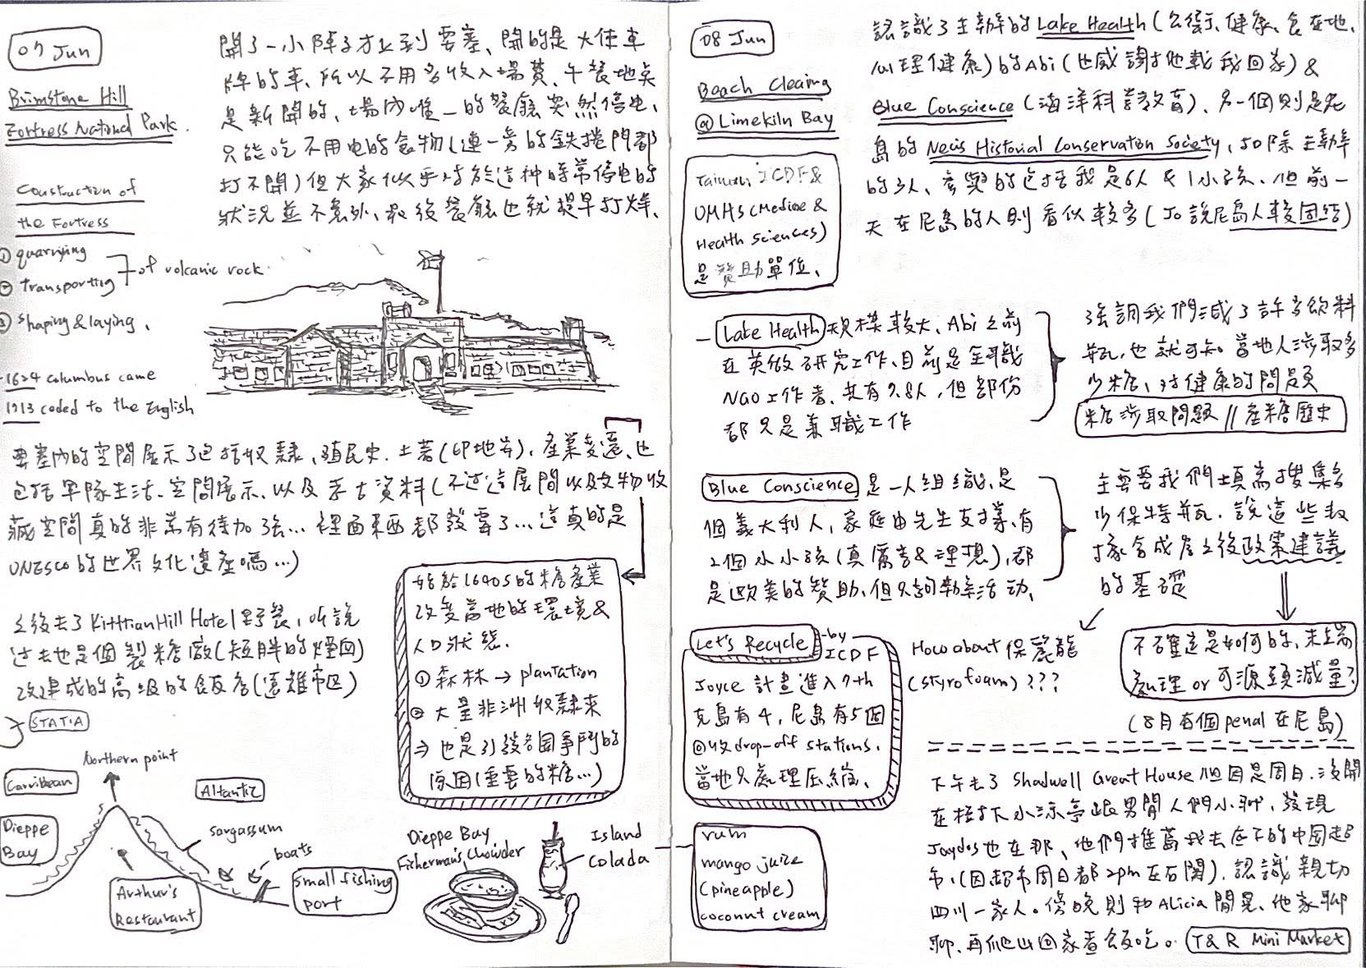 07 Jun
Brimstone Hill
Fortress National Park.
開了一小陣子才上到要塞、開的是大使車
牌的車、所以不用多收入場費、午餐地點
是新開的、場內唯一的餐廳突然停电、
只能吃不用电的食物(連一旁的鉄捲門都
打不開)但大家似乎對於這种時常停电的
狀況並不意外、最後餐廳也就提早打烊、
Construction of
the Fortress
① quarrying
② transporting
of volcanic rock.
③ shaping & laying、
1624 Columbus came
1713 coded to the English
要塞內的空間展示了包括奴隸、殖民史、土著(印地安)、產業変遷、也
包括軍隊生活、空間展示、以及考古資料(不过這展間以及文物收
藏空間真的非常有待加強...裡面東西都發霉了...這真的是
UNESCO的世界文化遺產嗎...)
之後去了KittitianHill Hotel野餐、听說
过去也是個製糖廠(短胖的煙囪)
改建成的高級的飯店(遠離市区)
始於1640s的糖產業
改変當地的環境&
人口狀態.
① 森林 → plantation
② 大量非洲奴隸來
⇒ 也是引發各國爭鬥的
原因(重要的糖...)
STATIA
Northern point
Carribean
Altantic
Dieppe
Bay
sargassum
boats
Arthur's
Restaurant
Small fishing
port
Dieppe Bay
Fisherman's Chowder
Island
Colada
08 Jun
Beach Clearing
@ Limekiln Bay
Taiwan ICDF &
UMHS (Medicine &
Health Sciences)
是贊助單位、
認識了主辦的Lake Health(公衛、健康、食在地、
心理健康)的Abi(也感謝他載我回家) &
Blue Conscience (海洋科普教育)、另一個則是尼
島的Nevis Historial Conservation Society、所以除主辦
的3人、參與的包括我是6人 & 1小孩、但前一
天在尼島的人則看似較多(Jo 說尼島人較團結)
Lake Health 規模較大、Abi之前
在英做研究工作、目前是全職
NGO工作者、共有7、8人、但部份
都只是兼職工作
強調我們減了許多飲料
瓶、也就可知當地人涉取多
少糖、對健康的問題
糖涉取問題 // 產糖歷史
Blue Conscience 是一人組織、是
個義大利人、家庭由先生支撐、有
2個小小孩(真厲害&理想)、都
是歐美的贊助、但只夠執行活動、
主要要我們填寫搜集多
少保特瓶、說這些數
據會成為之後政策建議
的基礎
Let's Recycle
-by
ICDF
Joyce 計畫進入7th
克島有4、尼島有5個
回收drop-off stations.
當地只處理压縮、
How about 保麗龍
(styrofoam) ???
不確定是如何的、末端
處理 or 可源頭減量?
(8月有個penal在尼島)
rum
mango juice
(pineapple)
coconut cream
下午去了 Shadwell Great House 但因是周日、沒開
在樹下小涼亭跟男閒人們小聊、發現
Jaydos也在那、他們推薦我去底下的中国超
市、(因超市周日都2pm左右開)、認識親切
四川一家人。傍晚則和Alicia閒晃、他家聊
聊、再爬山回家煮飯吃。 T & R Mini Market